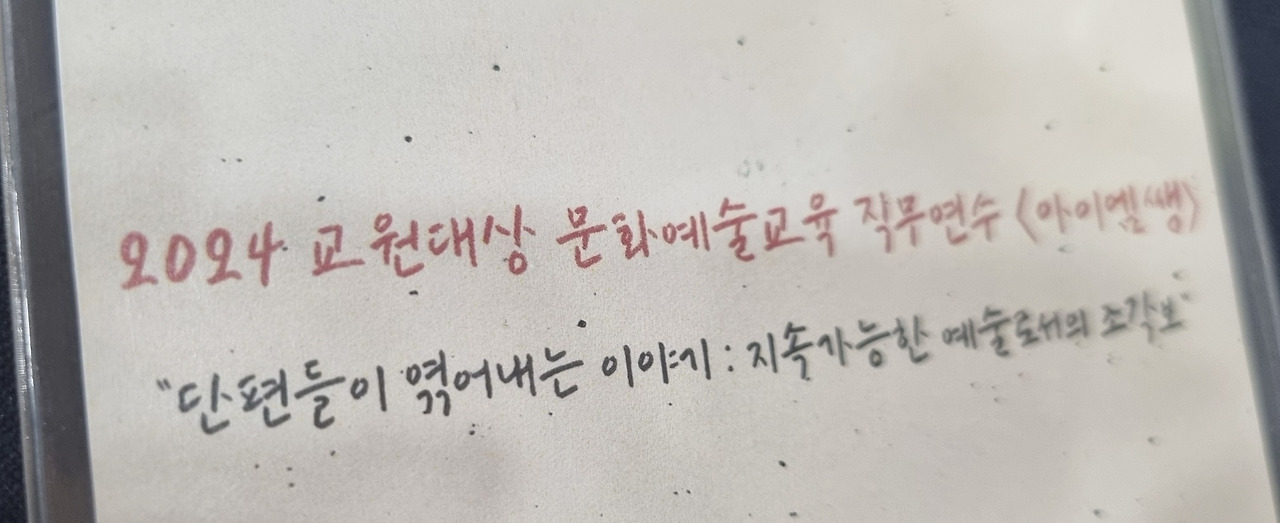 2024 교원대상 문화예술교육 직무연수 〈아이엠쌤〉
"단편들이 엮어내는 이야기 : 지속가능한 예술로서의 조각보"